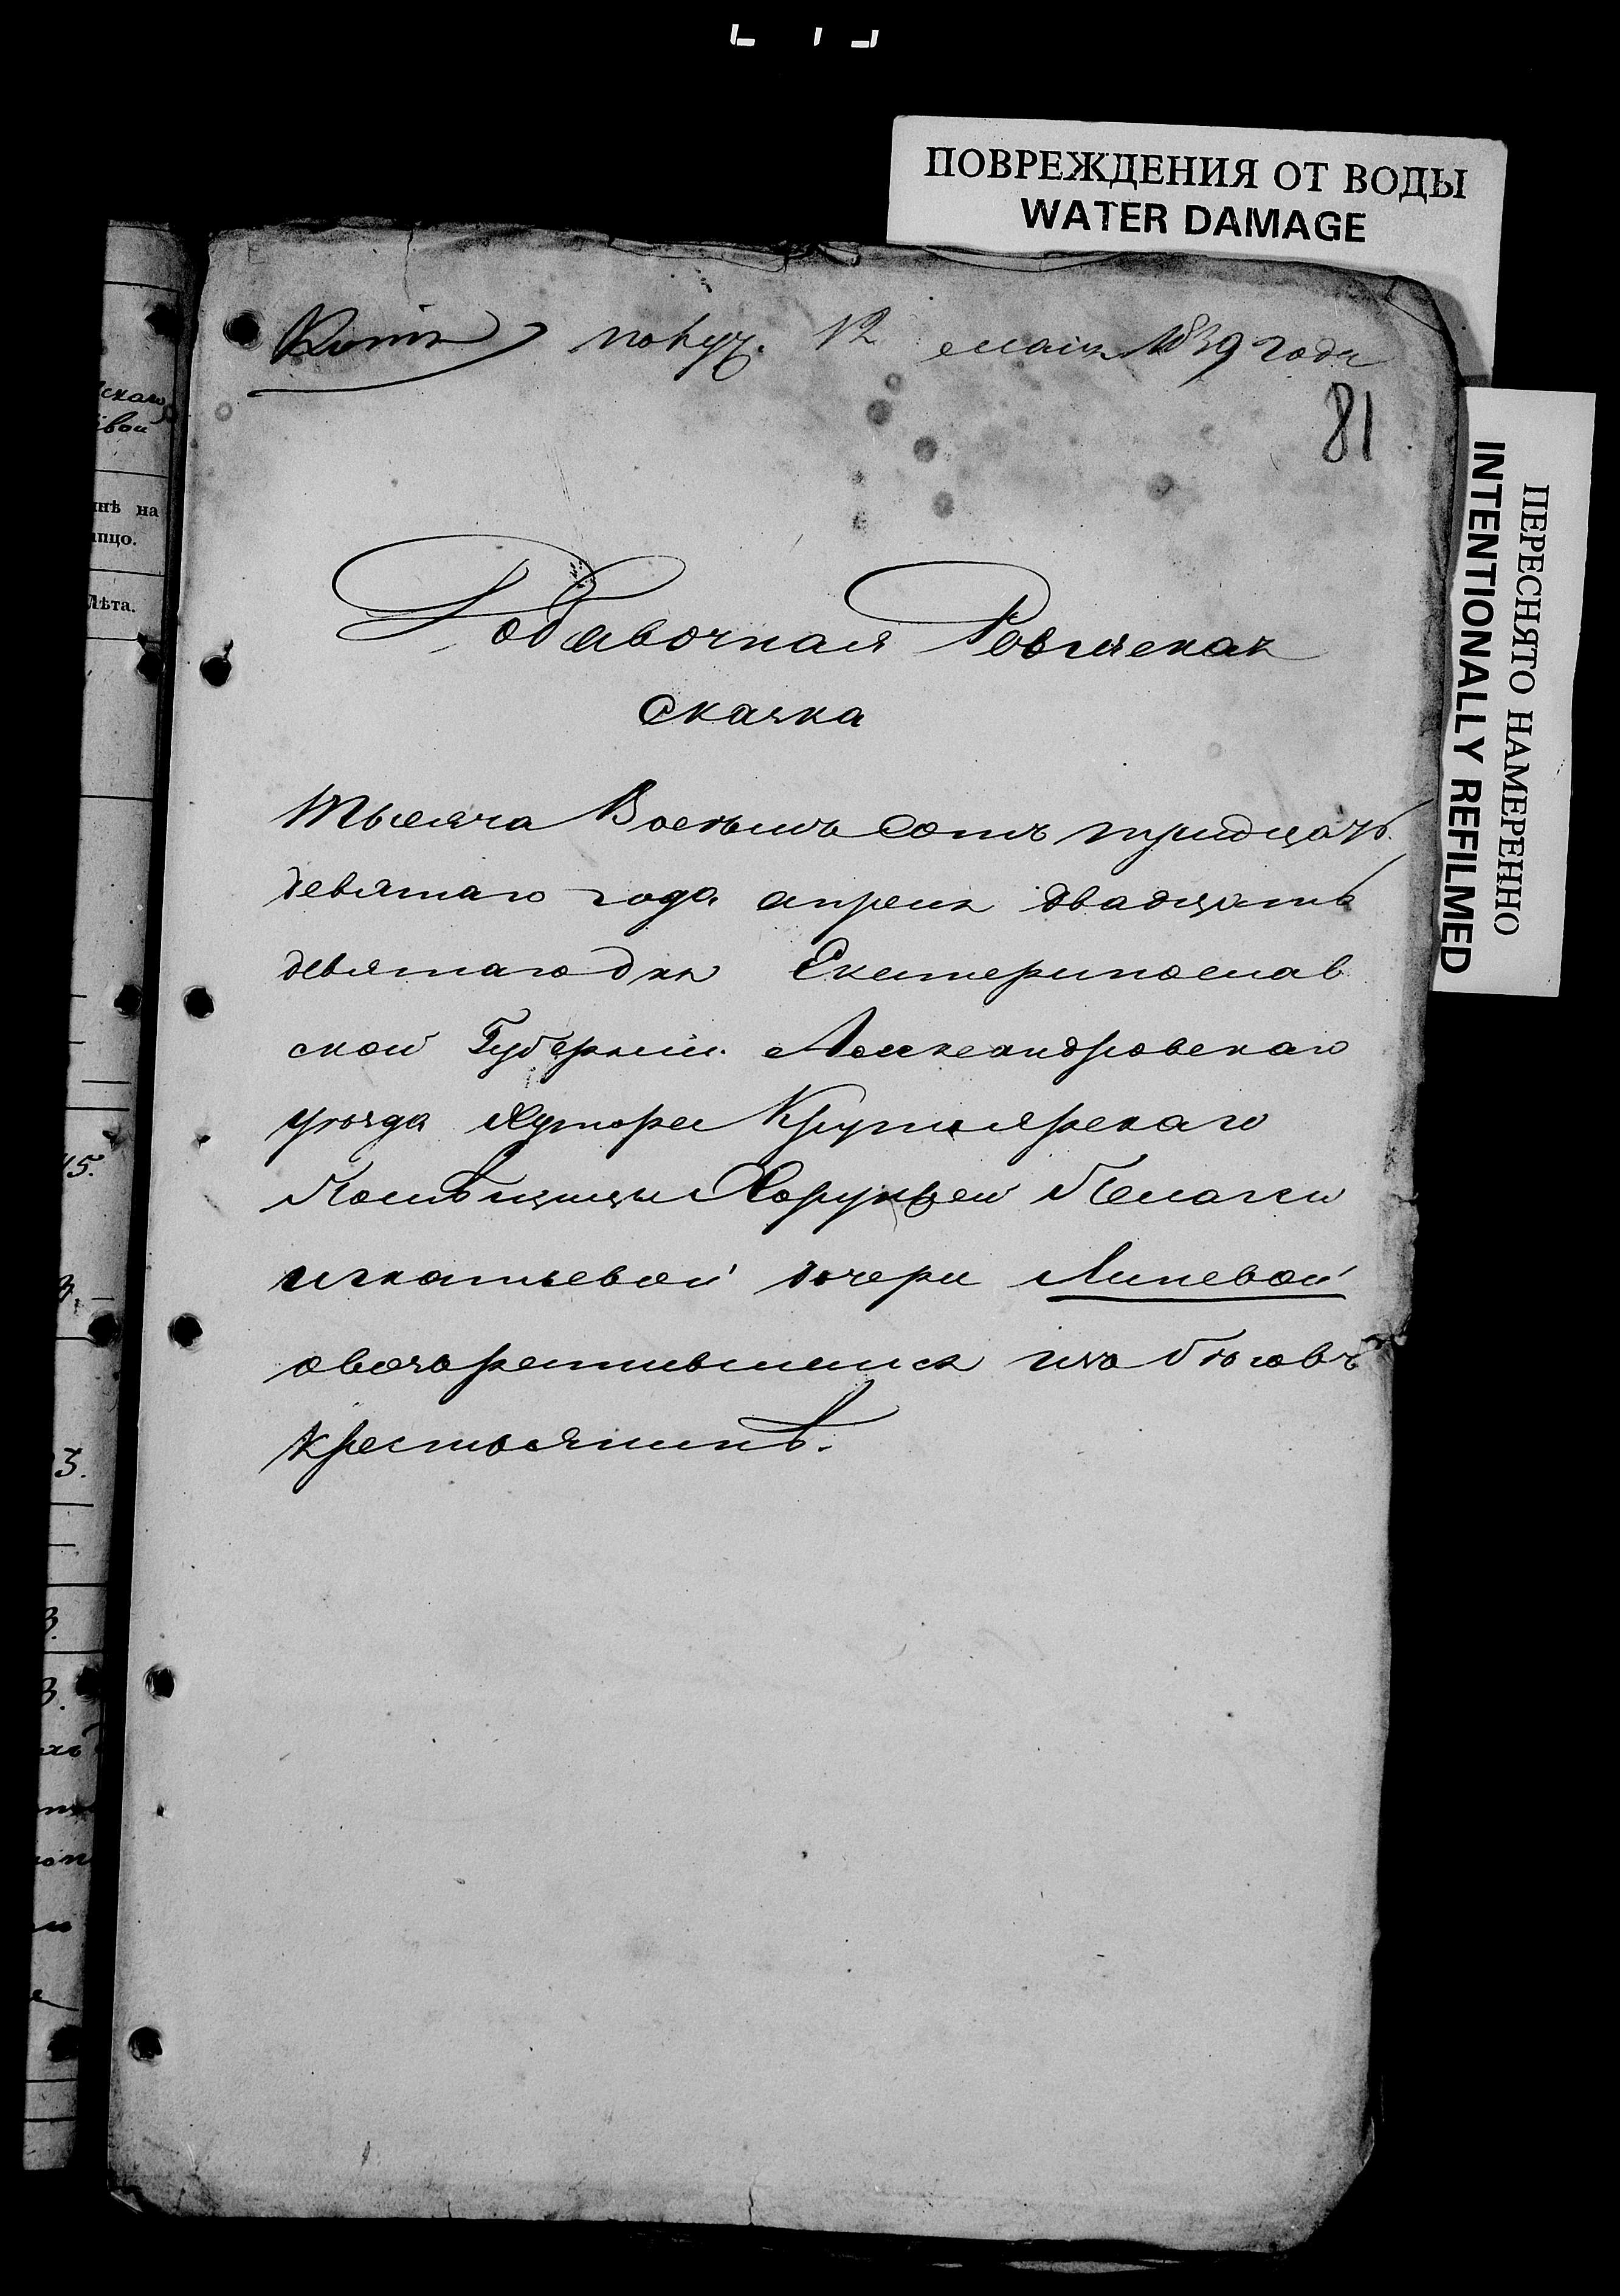 ПОВРЕЖДЕНИЯ ОТ ВОДЫ
WATER DAMAGE
ПЕРЕСНЯТО НАМЕРЕННО
INTENTIONALLY REFILMED
Копія получ. 12 маія 1839 года
81
Добавочная Ревизская
сказка
Тысяча Восемь Сотъ тридцать
девятаго года апреля двадцать
девятаго дня Екатеринослав
ской Губерніи Александровскаго
уѣзда Хутора Крутоярскаго
Помѣщицы Хорунжей Пелагеи
игнатьевой дочери Липевой
овозвратившемся изъ бѣговъ
крестьянинѣ.
скаго
вой
инѣ на
лицо.
Лѣта.
15.
3.
3.